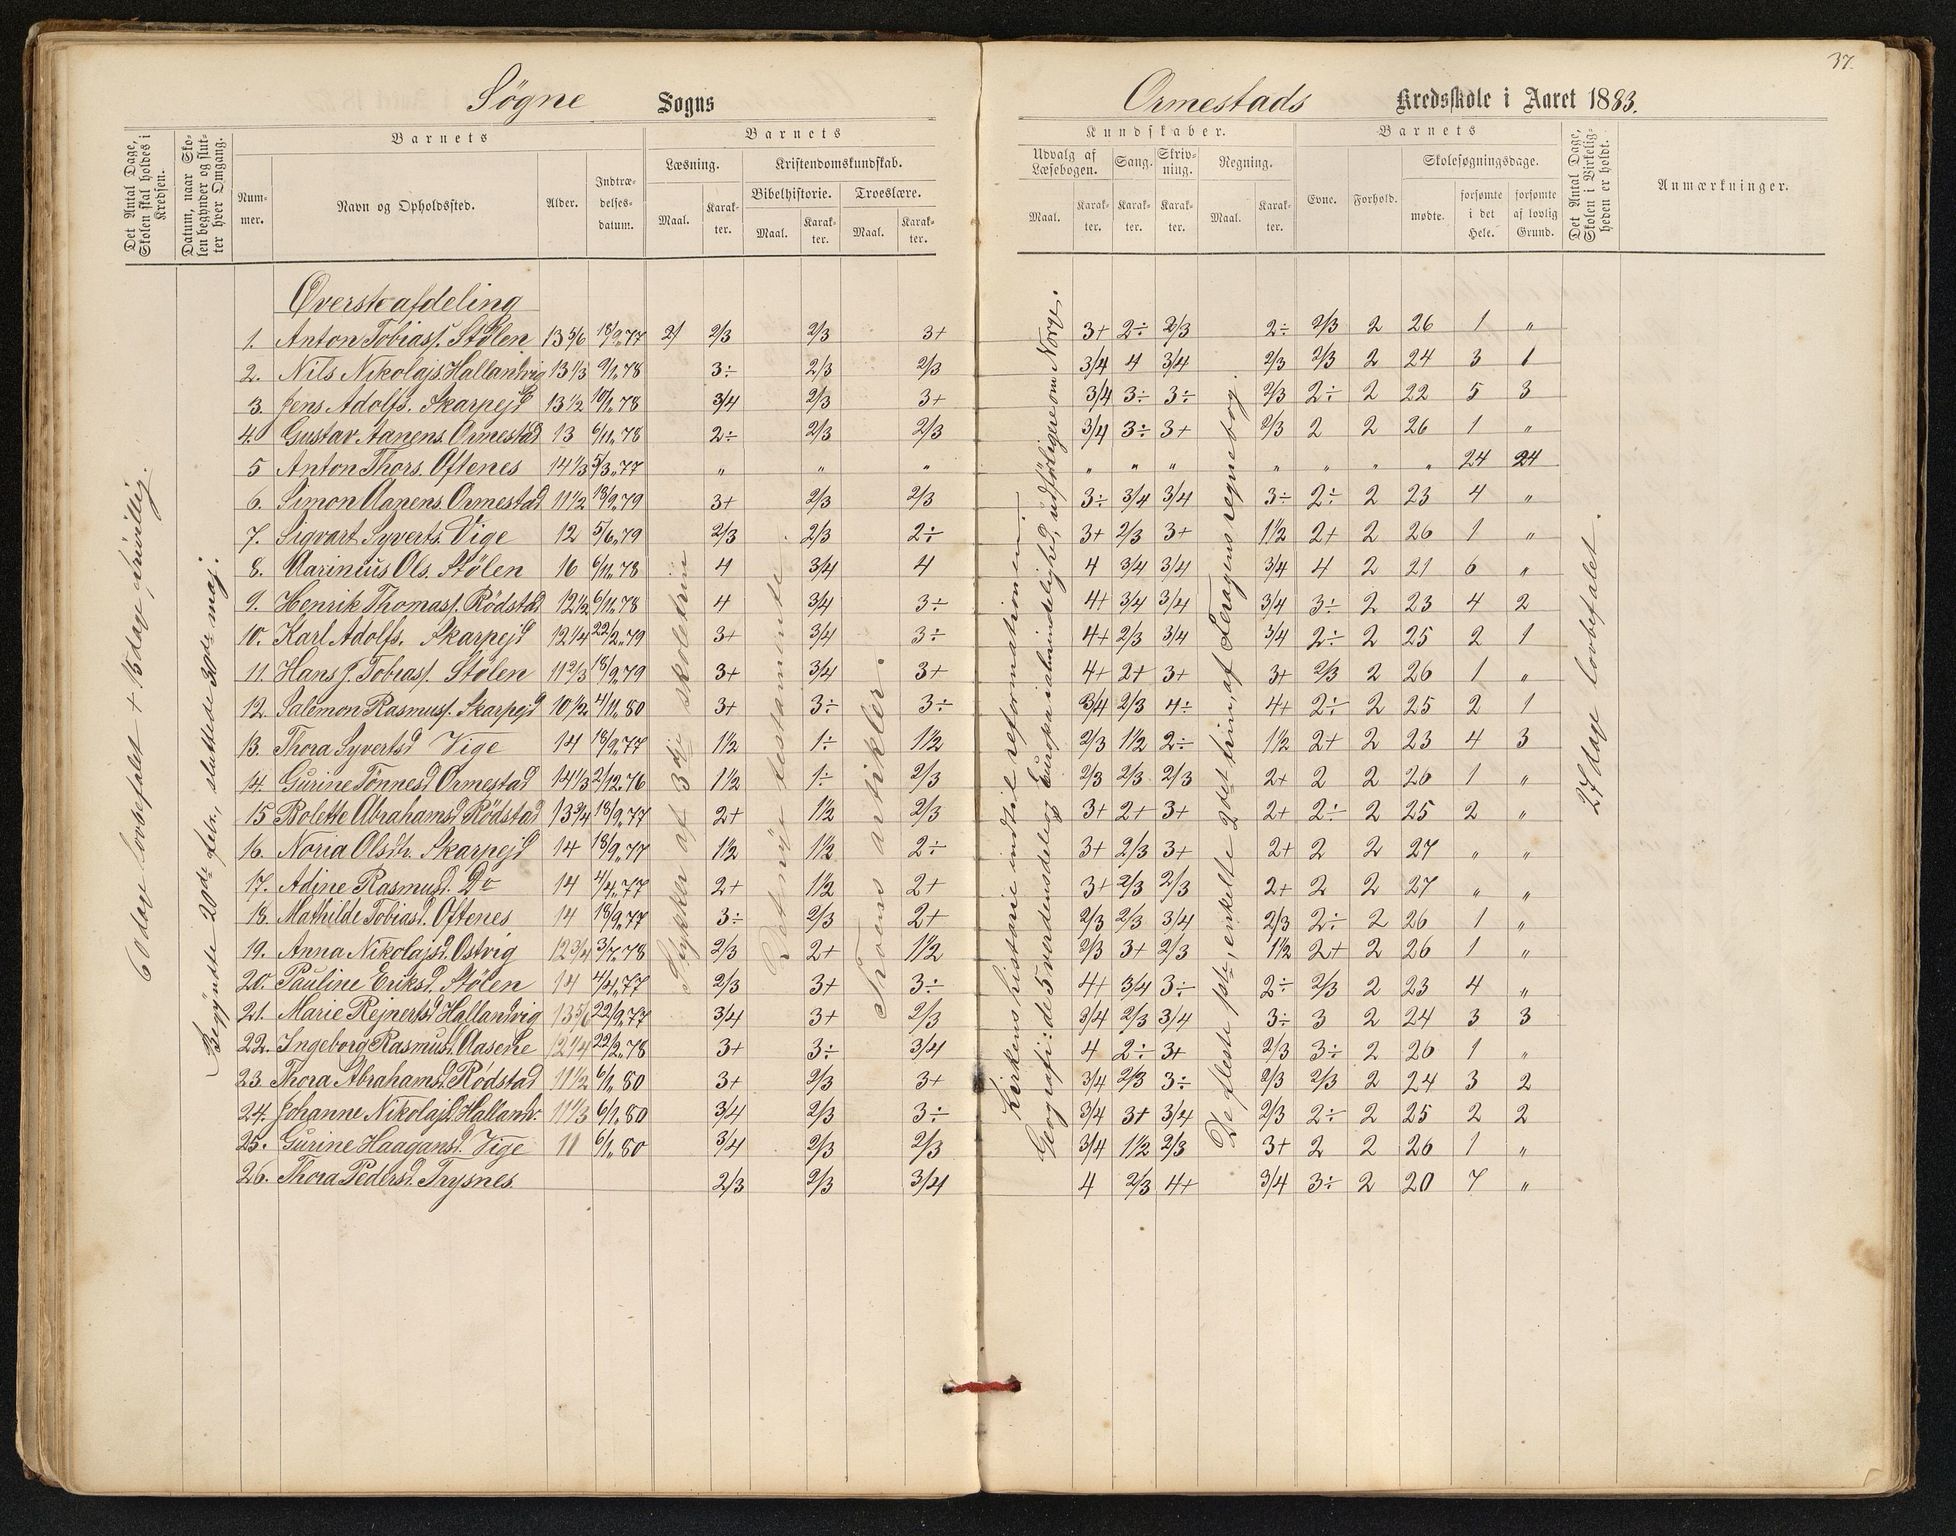 37.
Søgne Sogns
Ormestads Kredsskole i Aaret 1883.
Det Antal Dage, Skolen skal holdes i Kredsen.
Datum, naar Skolen begynder og slutter hver Omgang.
Barnets
Nummer.
Navn og Opholdssted.
Alder.
Indtrædelsesdatum.
Barnets
Læsning.
Maal.
Karakter.
Kristendomskundskab.
Bibelhistorie.
Maal.
Karakter.
Troeslære.
Maal.
Karakter.
Kundskaber.
Udvalg af Læsebogen.
Maal.
Karakter.
Sang.
Karakter.
Skrivning.
Karakter.
Regning.
Maal.
Karakter.
Barnets
Evne.
Forhold.
Skolesøgningsdage.
mødte.
forsømte i det Hele.
forsømte af lovlig Grund.
Det Antal Dage, Skolen i Virkeligheden er holdt.
Anmærkninger.
60 dage lovbefalet + 15 dage frivillig.
Begyndte 20de febr, sluttede 30te maj.
Stykker af 3die skoletrin
Det nye testamente.
Troens artikler.
Kirkens historie indtil reformationen.
Geografi: de 5 verdensdele og Europa i almindelighed, udføligere om Norge.
De fleste 1ste, enkelte 2det trin, af Geragens regnebog.
27 dage lovbefalet.
Øversteafdeling
1. Anton Tobiass. Stølen 13 5/6 18/9.77 2/3 2/3 3+ 3+ 2÷ 2/3 2÷ 2/3 2 26 1 "
2. Nils Nikolajs. Hallandvig 13 1/3 9/1.78 3÷ 2/3 2/3 3/4 4 3/4 2/3 2/3 2 24 3 1
3. Jens Adolfs. Skarpejd 13 1/2 10/1.78 3/4 2/3 3+ 3/4 3÷ 3÷ 2/3 2÷ 2 22 5 3
4. Gustav Aanens. Ormestad 13 6/11.78 2÷ 2/3 2/3 3/4 3÷ 3+ 2/3 2 2 26 1 "
5 Anton Thors. Oftenes 14 1/3 5/3.77 " " " " " " " " " " 24 24
6. Simon Aanens. Ormestad 11 1/2 18/9.79 3+ 2/3 2/3 3÷ 3/4 3/4 3÷ 2÷ 2 23 4 "
7. Sigvart Syverts. Vige 12 5/6.79 2/3 2/3 2÷ 3+ 2/3 3+ 1 1/2 2+ 2 26 1 "
8. Marinius Ols. Stølen 16 6/11.78 4 3/4 4 4 3/4 3/4 3/4 4 2 21 6 "
9. Henrik Thomass. Rödstad 12 1/2 6/11.78 4 3/4 3÷ 4+ 3/4 3/4 3/4 3÷ 2 23 4 2
10. Karl Adolfs. Skarpejd 12 1/4 22/2.79 3+ 3/4 3÷ 4+ 2/3 3/4 3/4 2÷ 2 25 2 1
11. Hans J. Tobiass. Stølen 11 2/3 18/9.79 3+ 3/4 3+ 4+ 2+ 3+ 3+ 2/3 2 26 1 "
12. Salemon Rasmuss. Skarpejd 10 1/2 4/11.80 3+ 3÷ 3÷ 3/4 2/3 4÷ 4+ 2÷ 2 25 2 1
13. Thora Syvertsd. Vige 14 18/9.77 1 1/2 1÷ 1 1/2 2/3 1 1/2 2÷ 1 1/2 2+ 2 23 4 3
14. Gurine Tønnesd. Ormestad 14 1/3 2/12.76 1 1/2 1÷ 2/3 2/3 2/3 2/3 2+ 2 2 26 1 "
15 Bolette Abrahamsd. Rödstad 13 3/4 18/9.77 2+ 1 1/2 2/3 3+ 2+ 3+ 2+ 2÷ 2 25 2 "
16. Noria Olsdr. Skarpejd 14 18/9.77 1 1/2 1 1/2 2÷ 3+ 2/3 3+ 2+ 2 2 27 " "
17. Adine Rasmusd. Do 14 4/4.77 2+ 1 1/2 2+ 3+ 2/3 2/3 2+ 2 2 27 " "
18. Mathilde Tobiasd. Oftenes 14 18/9.77 3÷ 2/3 2+ 2/3 2/3 3/4 2/3 2÷ 2 26 1 "
19. Anna Nikolajsd. Ostvig 12 3/4 3/7.78 2/3 2+ 1 1/2 2/3 3+ 2/3 1 1/2 2+ 2 26 1 "
20. Pauline Eriksd. Stølen 14 4/4.77 2/3 3+ 3÷ 4+ 3/4 3÷ 2÷ 2/3 2 23 4 "
21. Marie Rejnertsd. Hallandvig 13 5/6 22/9.77 3/4 3+ 2/3 3/4 2/3 3/4 3÷ 3 2 24 3 3
22. Ingeborg Rasmusd. Aasene 12 1/4 22/2.78 3+ 3÷ 3/4 4 2÷ 3+ 2/3 3÷ 2 26 1 "
23. Thora Abrahamsd. Rødstad 11 1/2 6/1.80 3+ 2/3 3+ 3/4 2/3 3÷ 2/3 2/3 2 24 3 2
24. Johanne Nikolajsd. Hallandv. 11 1/3 6/1.80 3/4 2/3 3÷ 3/4 3+ 3/4 2/3 2÷ 2 25 2 2
25. Gurine Haagansd. Vige 11 6/1.80 3/4 2/3 2/3 3/4 1 1/2 2/3 3+ 2 2 26 1 "
26. Thora Pedersd. Trysnes. 2/3 2/3 3/4 4 2/3 4+ 3/4 3÷ 2 20 7 "